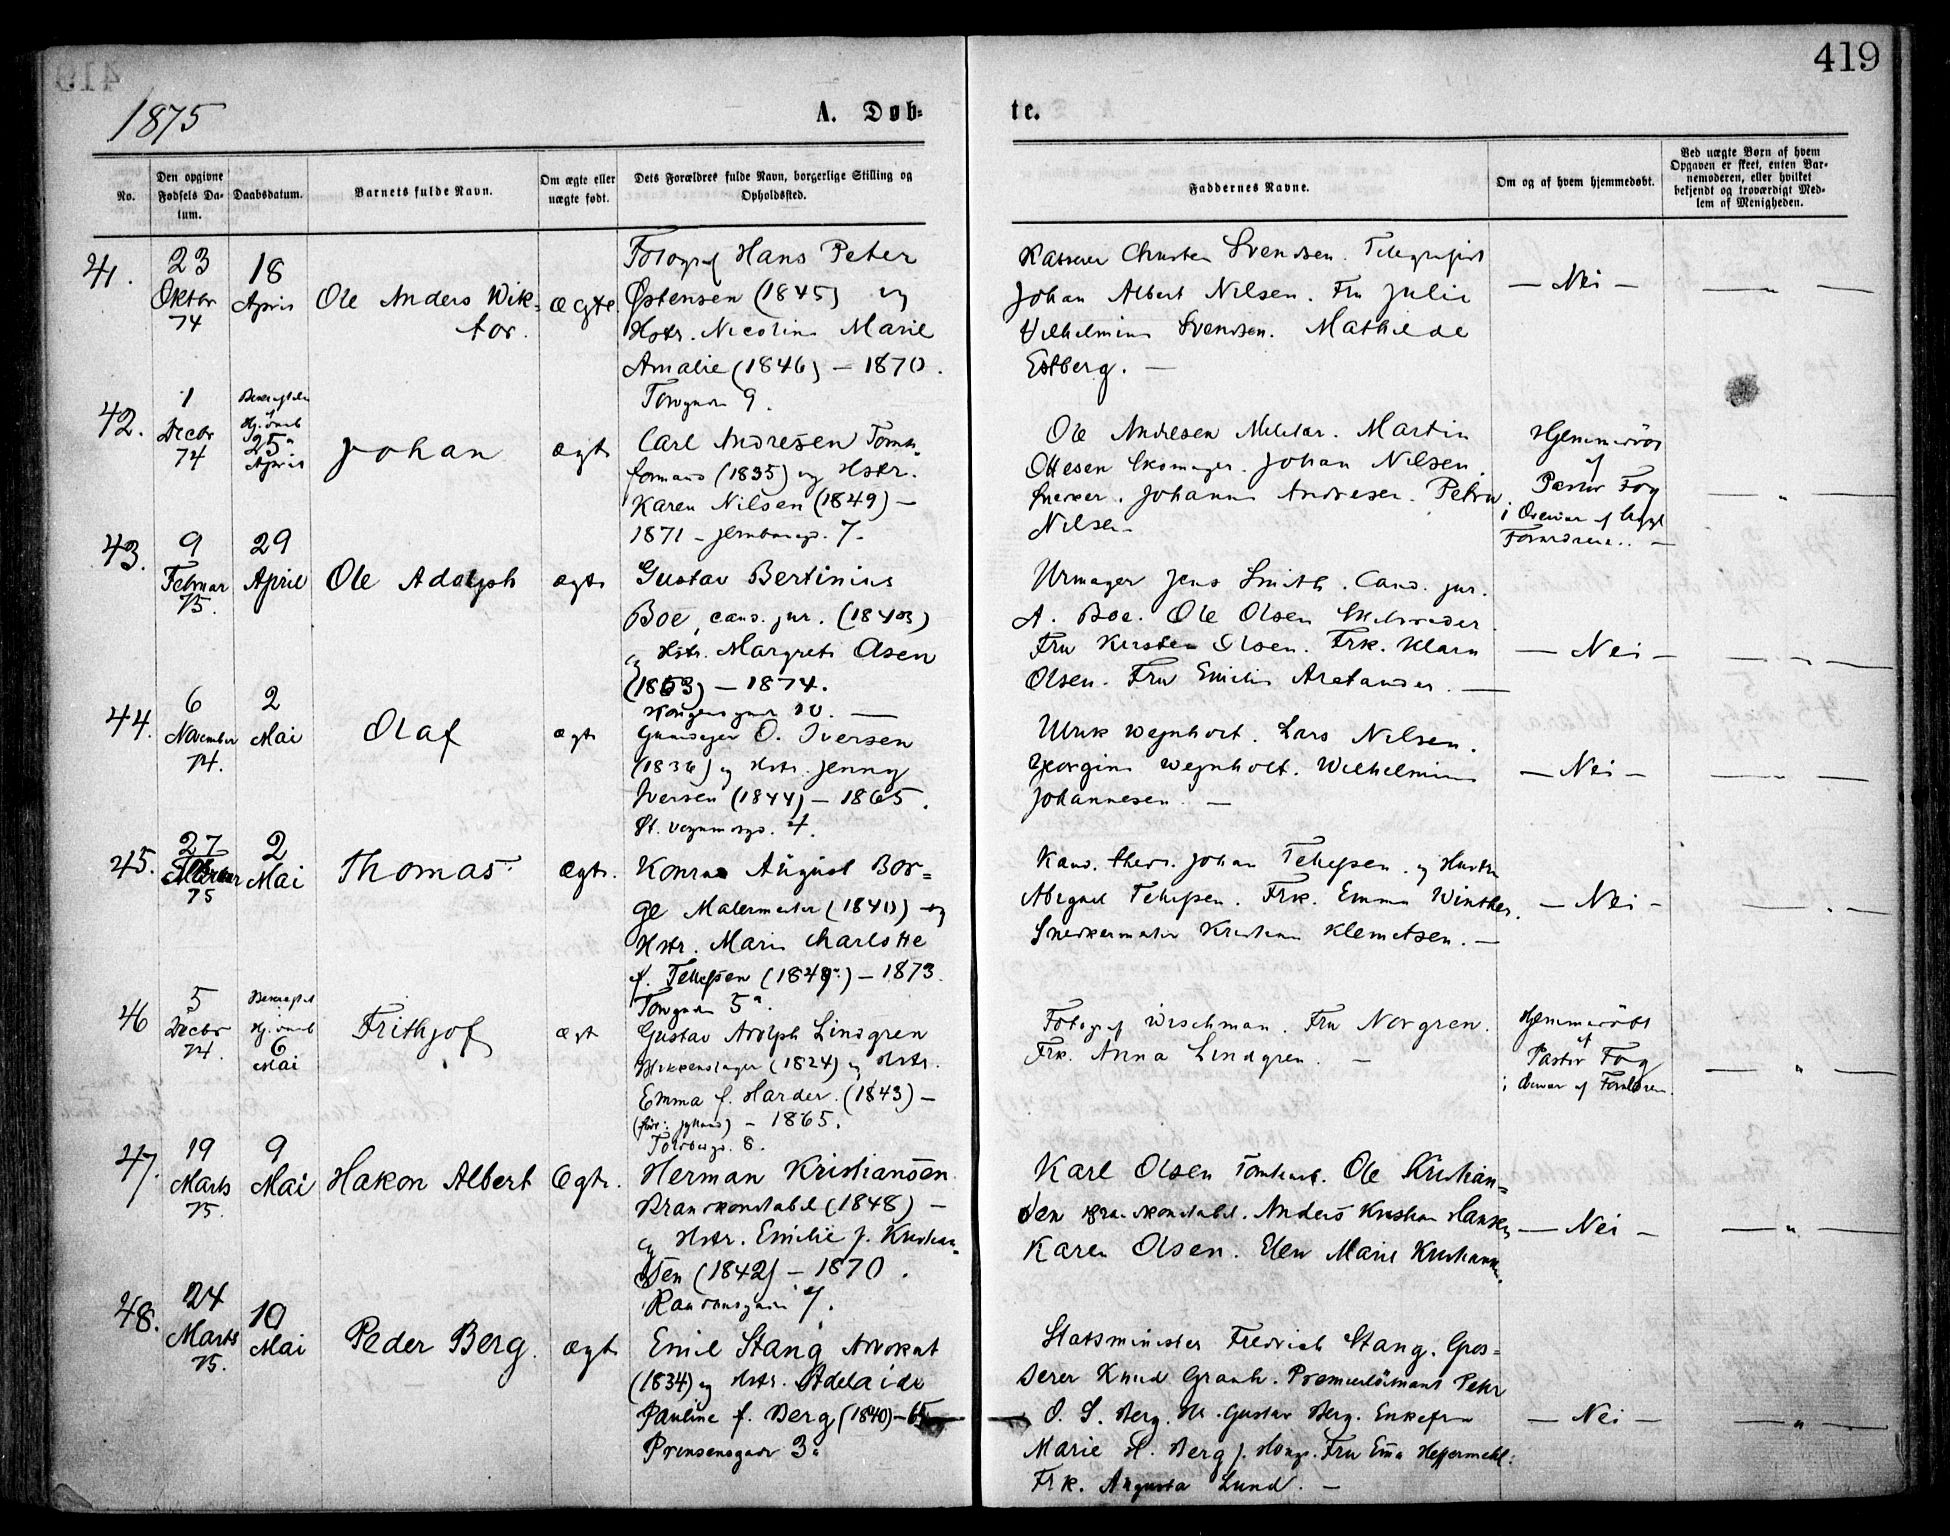 419
1875
A. Døb-
te.
No.
Den opgivne Fødsels Datum.
Daabsdatum.
Barnets fulde Navn.
Om ægte eller uægte født.
Dets Forældres fulde Navn, borgerlige Stilling og Opholdssted.
Faddernes Navne.
Om og af hvem hjemmedøbt.
Ved uægte Børn af hvem Opgaven er skeet, enten Barnemoderen, eller hvilket bekjendt og troværdigt Medlem af Menigheden.
41.
23 Oktbr 74
18 April
Ole Anders Viktor.
ægte.
Fotograf Hans Peter
Østensen (1845) og
Hstr. Nicoline Marie
Amalie (1846) – 1870.
Torvgaden 9.
Kasserer Christen Svendsen. Telegrafist
Johan Albert Nilsen. Fru Julie
Vilhelmine Svendsen. Mathilde
Estberg. —
— Nei —
— „ —
42.
1 Decbr 74
Hj.daab 25 April
Johan
ægte
Carl Andresen Tomte-
formand (1835) og Hstr.
Karen Nilsen (1849) –
1871 – Jernbaneg. 7.
Ole Andresen Militær. Martin
Ottesen Skomager. Johan Nilsen
Snekker. Johanne Andresen. Petra
Nilsen
Hjemmedøbt
af
Pastor Fog
i Overvær af
Forældrene. —
— „ —
43.
9 Februar 75.
29 April
Ole Adolph
ægte
Gustav Bertinius
Boe, cand. jur. (1843)
og Hstr. Margrete Olsen
(1853) – 1874.
Kongensgade 10. —
Urmager Jens Smith. Cand. jur.
A. Boe. Ole Olsen
Fru Kirsten Olsen. Frk. Klara
Olsen. Fru Emilie Aretander. —
— Nei —
— „ —
44.
6 November 74.
2 Mai
Olaf
ægte
O. Iversen
(1836) og Hstr. Jenny
Iversen (1844) – 1865.
4.
Ulrik Wejnholt. Lars Nilsen.
Georgine Wejnholt. Wilhelmine
Johannesen. —
— Nei —
— „ —
45.
27 Februar 75
2 Mai
Thomas
Ægte.
Konrad August Bor-
ge Malermester (1840) og
Hstr. Marie Charlotte
f. Tellefsen (1849) – 1873.
Torvgaden 5a
Kand. theol. Johan Tellefsen og Hustru
Abigael Tellefsen. Frk. Emma Winther.
Snedkermester Kristian Klemetsen. —
— Nei —
— „ —
46
5 Decbr 74.
Hj.daab 6 Mai
Frithjof
ægte
Gustav Adolph Lindgren
Blikkenslager (1824) og Hstr.
Emma f. Harder. (1843) –
– 1865.
8.
Fotograf Wischman. Fru Norgren.
Frk. Anna Lindgren. —
Hjemmedøbt
af
Pastor Fog
i Overvær af Forældrene.
— „ —
47.
19 Marts 75.
9 Mai
Hakon Albert
Ægte.
Herman Kristiansen
Brandkonstabel (1848) –
og Hstr. Emilie f. Kristian-
sen (1842) – 1870.
7.
Karl Olsen Tomtearb. Ole Kristian-
sen Brandkonstabel. Anders Kristian Hansen
Karen Olsen. Elen Marie Kristiansen.
— Nei —
— „ —
48.
24 Marts 75.
10 Mai
Peder Berg.
ægte
Emil Stang Advokat
(1834) og Hstr. Adelaide
Pauline f. Berg (1840) – 65
Prinsensgade 3a
Statsminister Fredrich Stang. Gros-
serer Knud Graah. Premierløitnant Peter
O. S. Berg. Hr. Gustav Berg. Enkefru
Marie H. Berg f. . Fru Ema Heffermehl.
Frk. Augusta Lund. —
— Nei —
— „ —